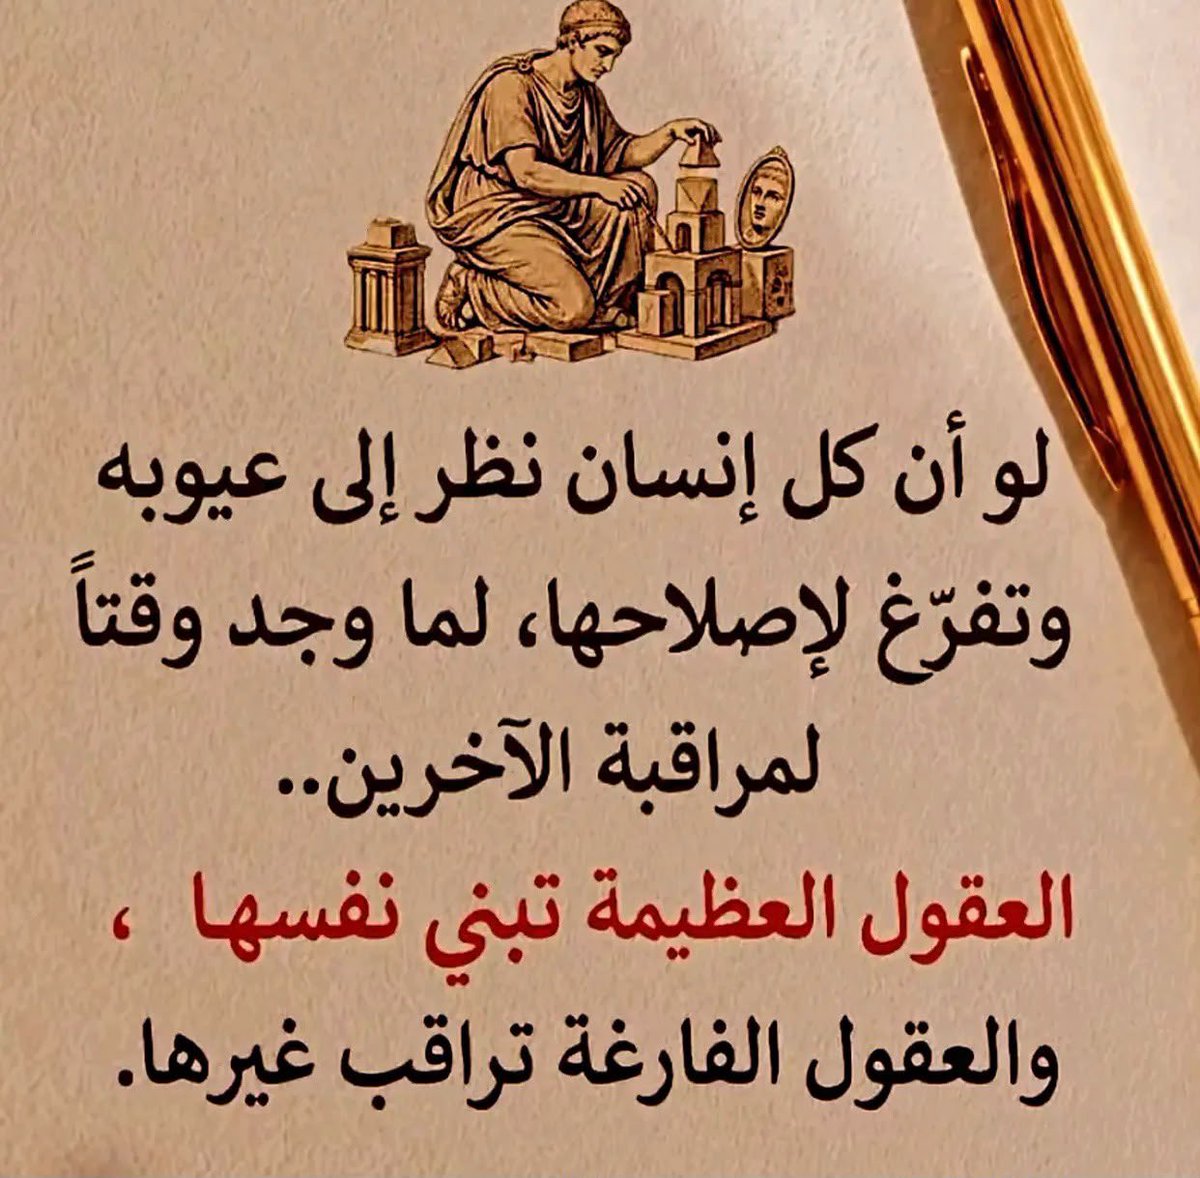 لو أن كل إنسان نظر إلى عيوبه
وتفرّغ لإصلاحها، لما وجد وقتاً
لمراقبة الآخرين..
العقول العظيمة تبني نفسها ،
والعقول الفارغة تراقب غيرها.